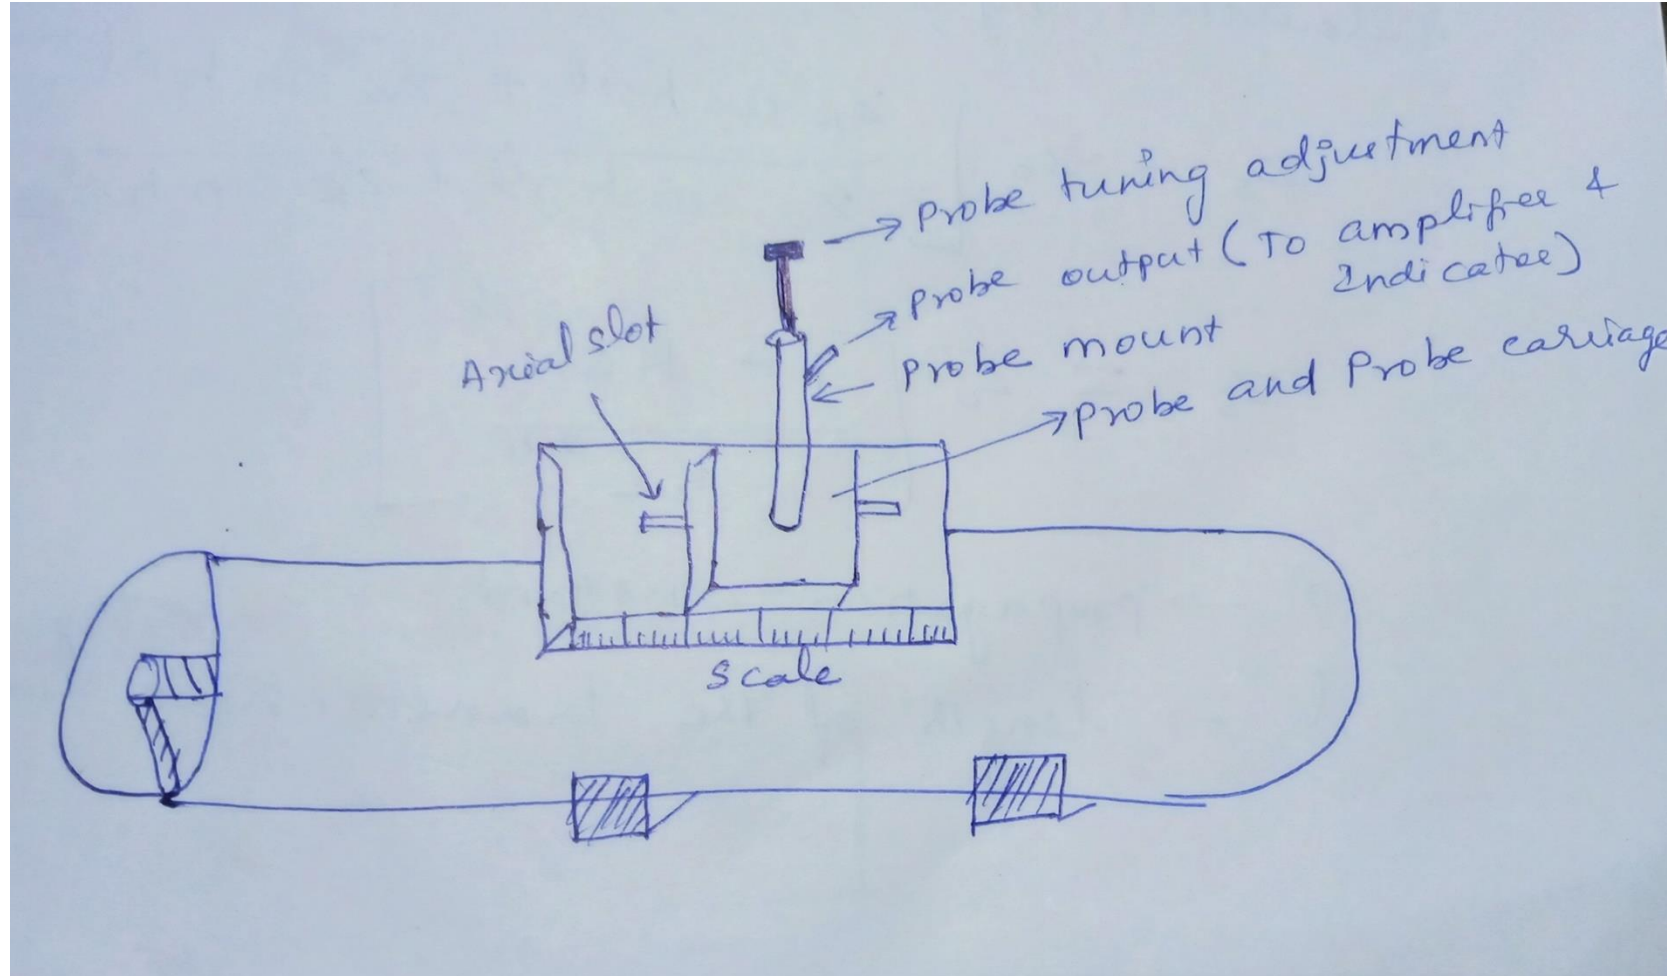 Probe tuning adjustment
Probe output (To amplifier &
Indicator)
Axial slot
Probe mount
Probe and Probe carriage
Scale